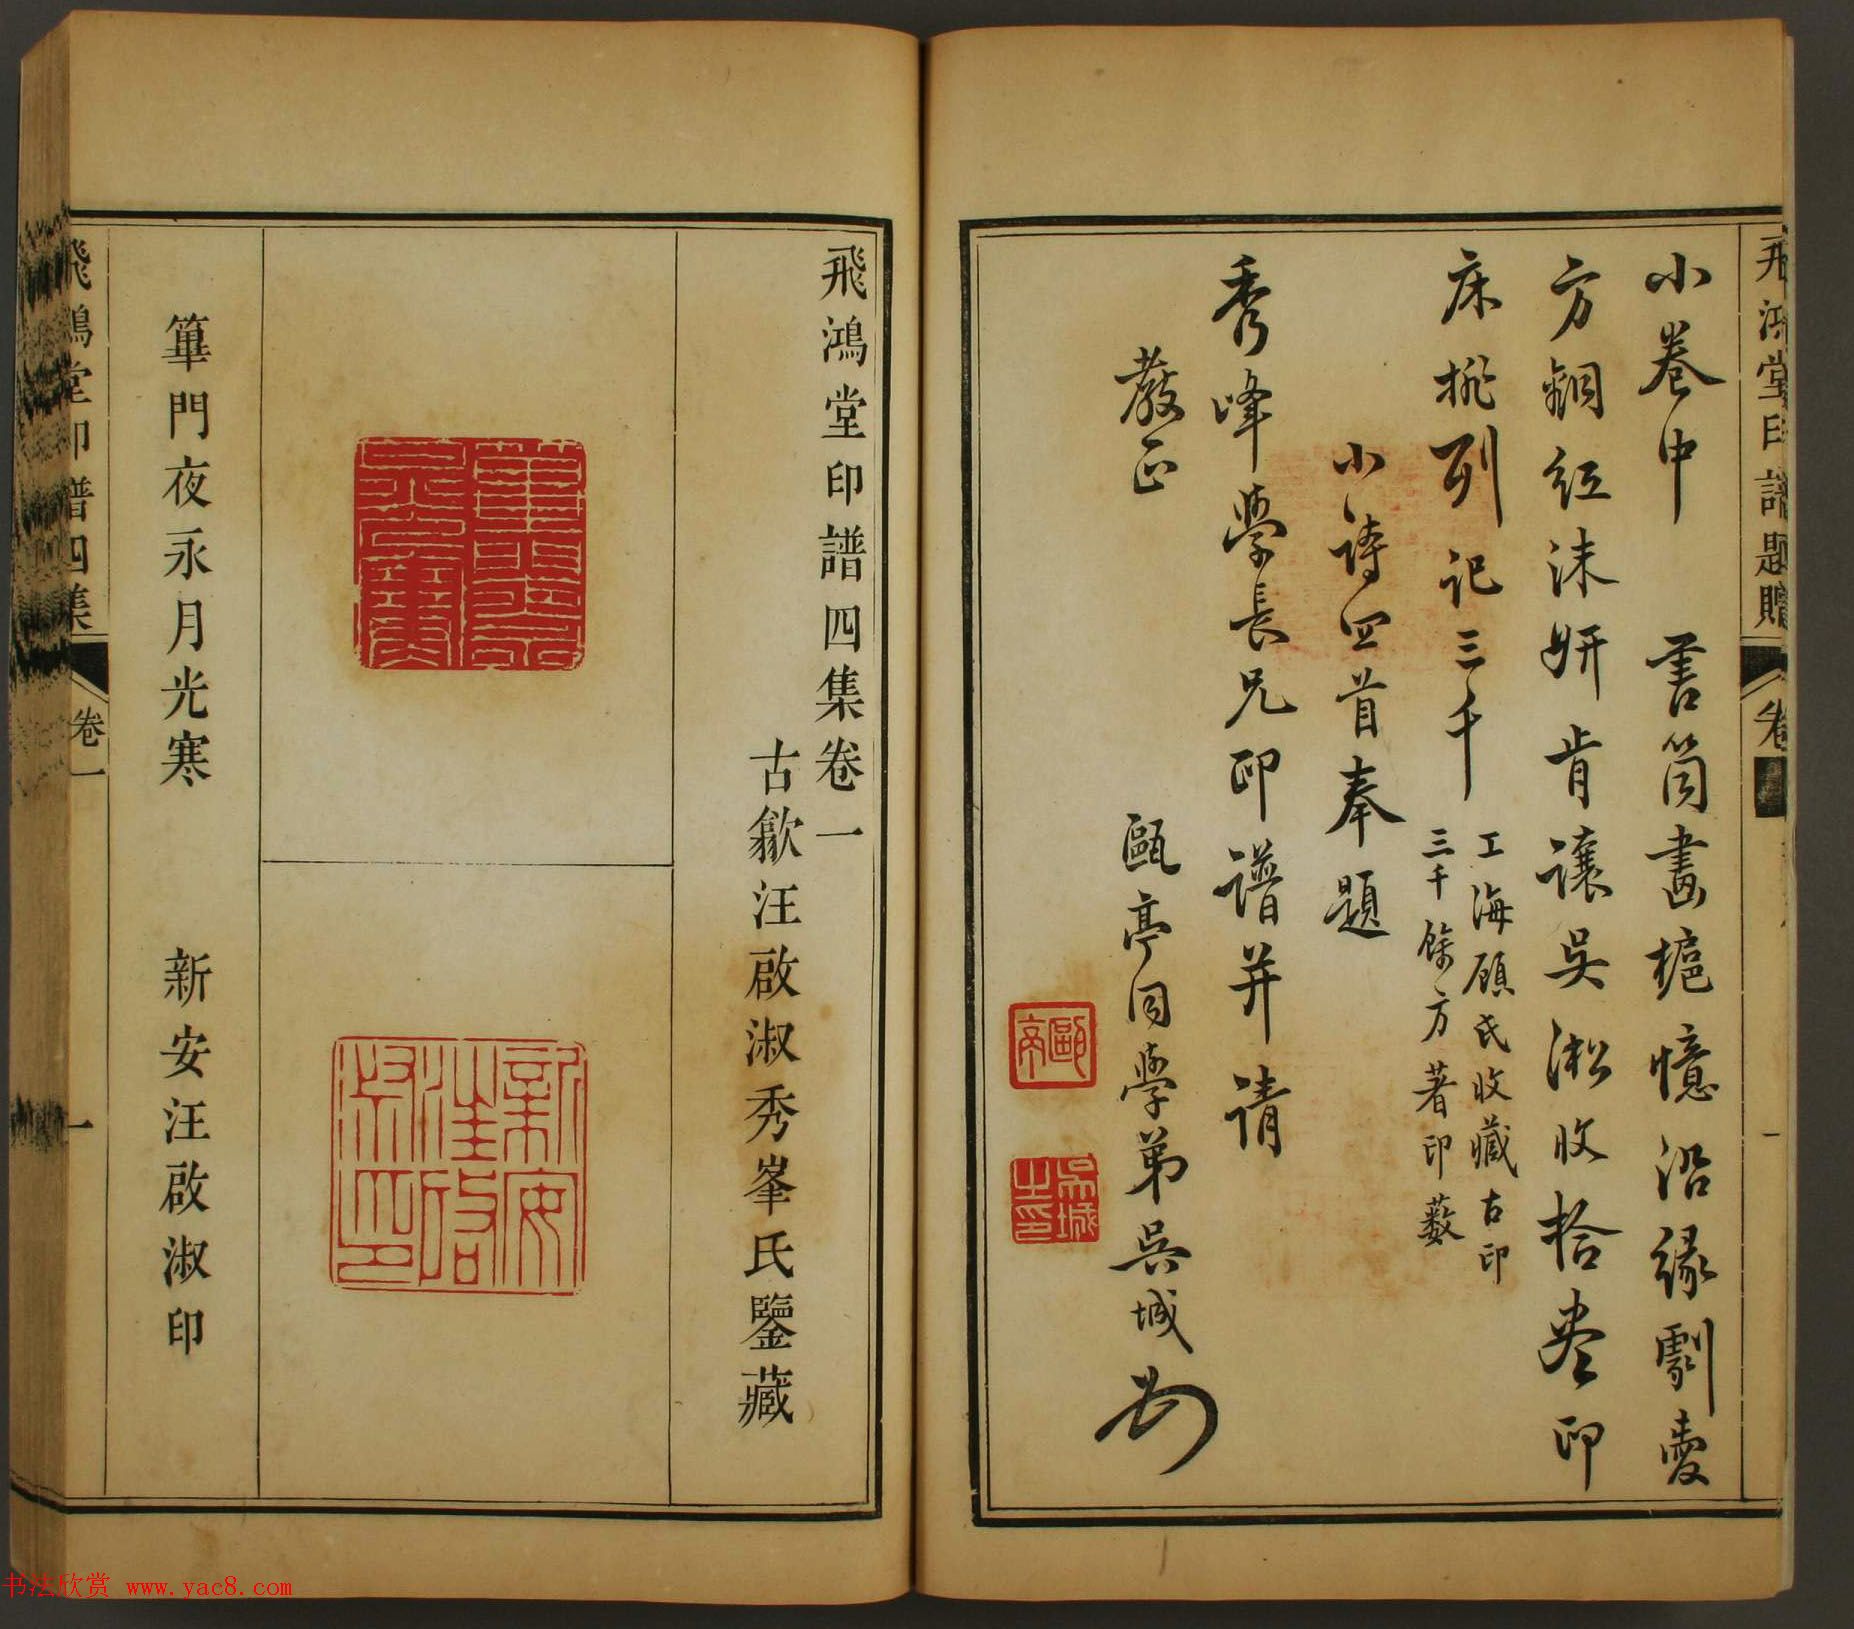 飛鴻堂印譜題贈
卷
一
小卷中　書筒畫槴憶沿緣劇愛
方銅紅沫妍肯讓吳淞收拾盡印
床排列記三千
工海顧氏收藏古印
三千餘方著印藪
小詩四首奉題
秀峰學長兄印譜并請
教正
甌亭同學弟吳城
甌亭
吳城之印
飛鴻堂印譜四集卷一
古歙汪啟淑秀峯氏鑒藏
新安汪啟淑印
篳門夜永月光寒
新安汪啟淑印
飛鴻堂印譜四集
卷一
一
书法欣赏 www.yac8.com